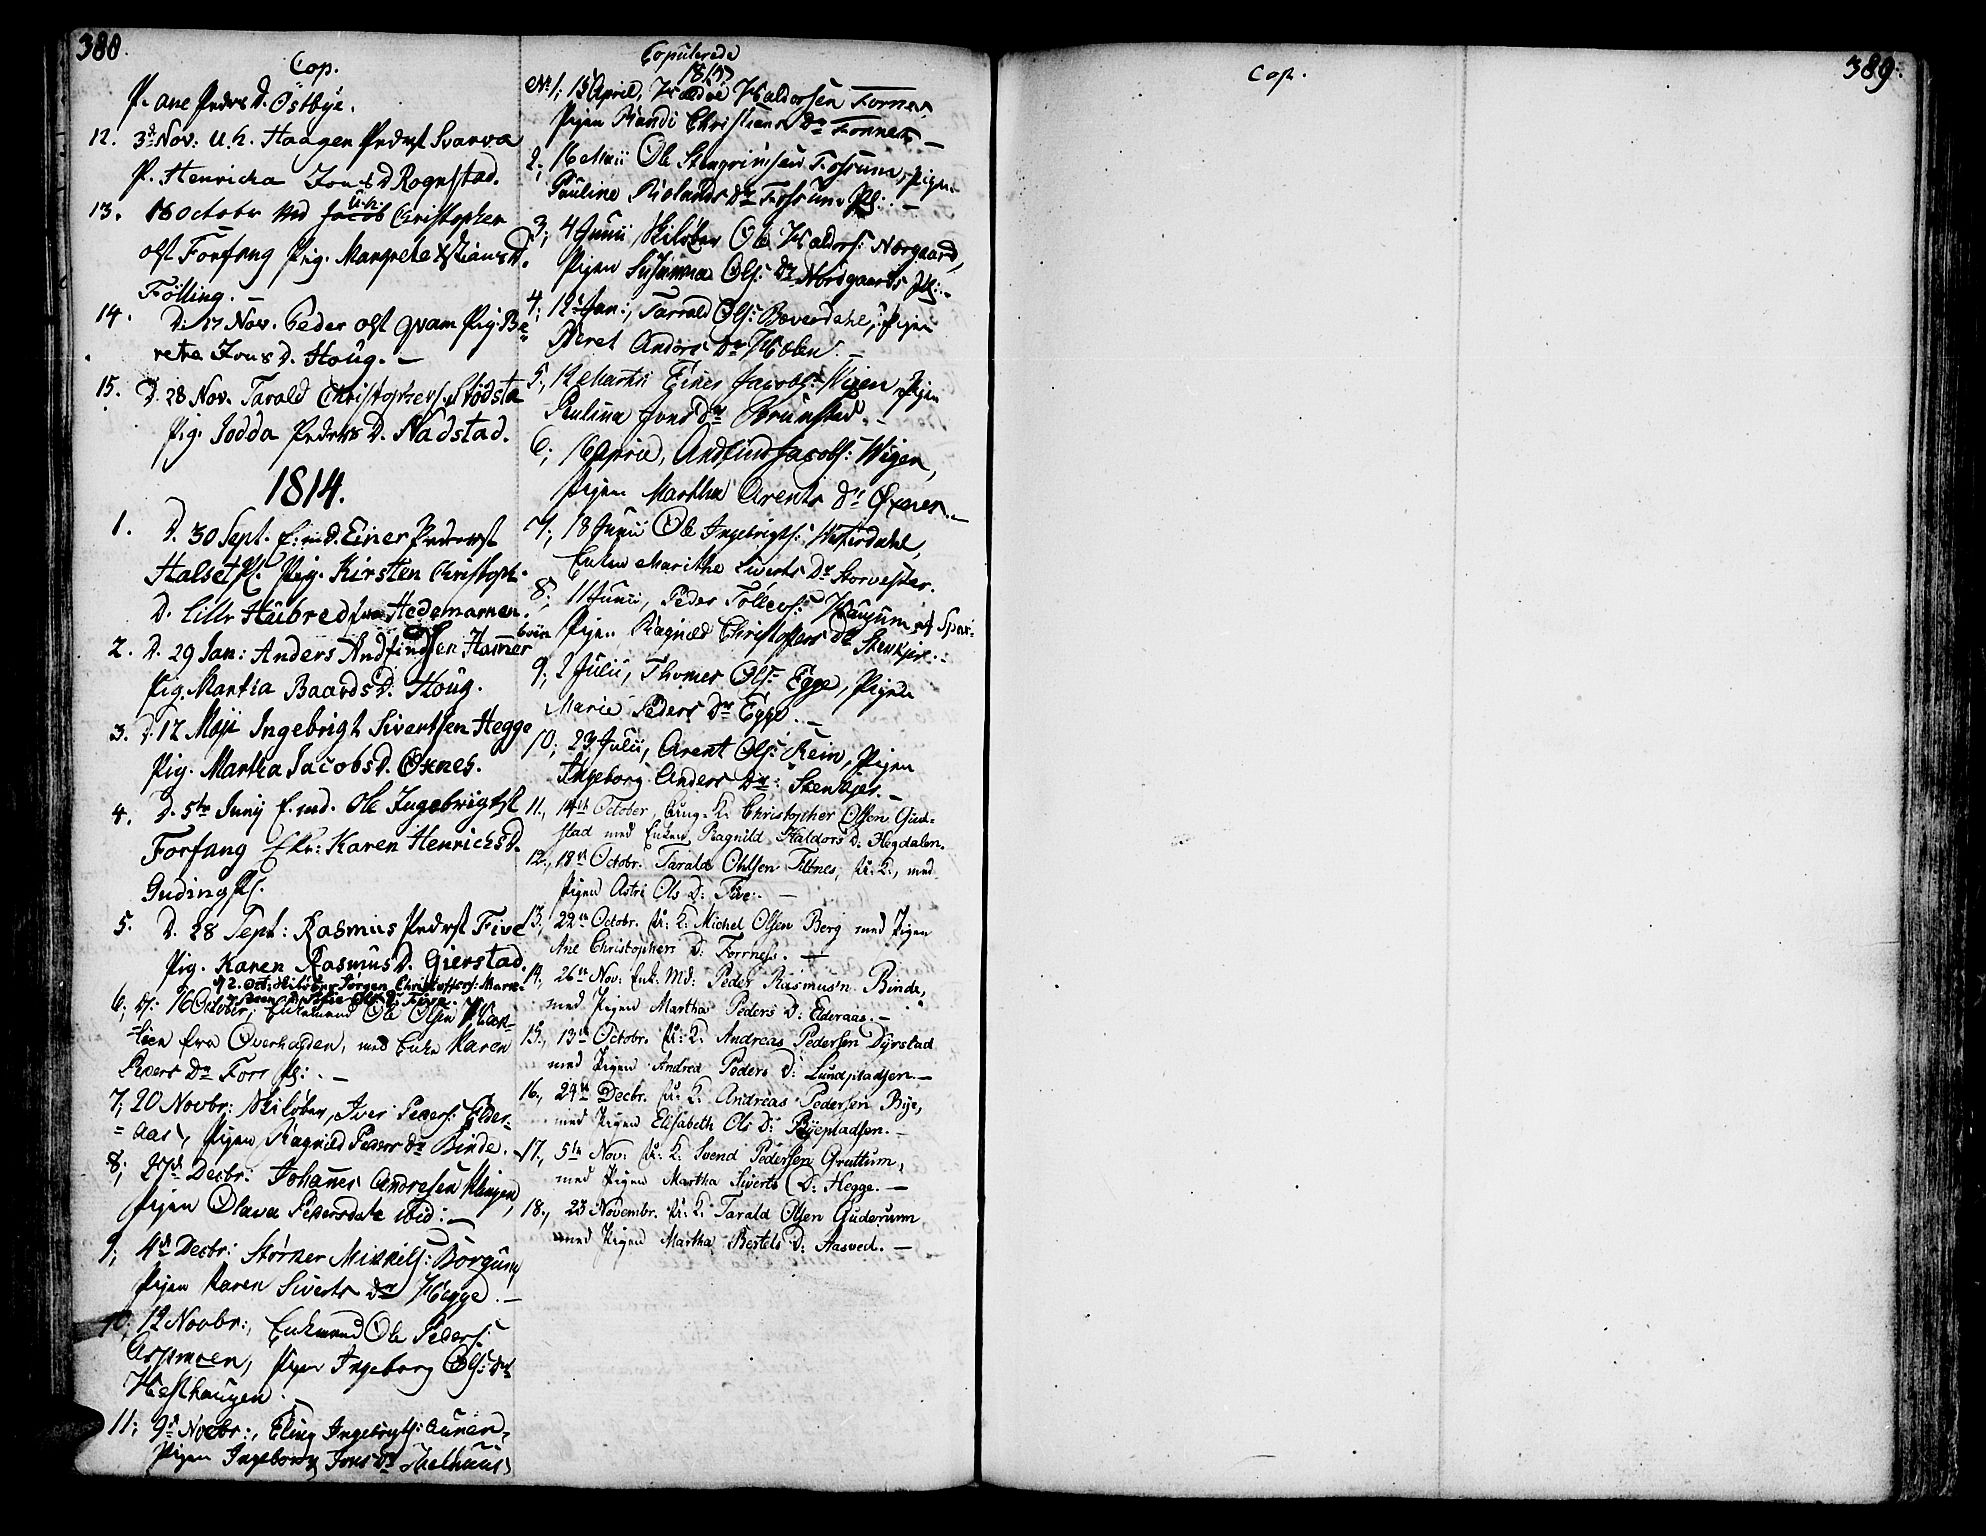 388.
Cop.
P. ane Peders D. Östbÿe.
12. 3d Nov: U.k. Haagen Pedersl Svarva
P. Henricha Jons D Rognstad.
13. 18 Octobr Md U.k. Jacob Christopher
olsl Forfang Pig. Margrete Xstians D.
Fölling. —
14. D. 17 Nov. Peder olsl qvam Pig. Be=
retha Jons D. Houg. —
15. D. 28 Nov. Tarald Christophers. Stödsta
Pig. Jodda Peders D. Nadstad.
1814.
1. D. 30 Sept. E:md. Einer Pedersl
Halset Pl. Pig. Kirsten Christoph.
D. Lille Hübred fra Hedemarnen.
2. D. 29 Jan: Anders Andfindsen Hamer
Pig. Martia Baards D. Houg.
3. D. 17 Maji Ingebrigt Sivertsen Hegge
Pig. Martha Jacobs D. Oxnes.
4. D. 5te Junÿ E. md. Ole Ingebrigtsl
Forfang Ek: Karen Henrichs D.
Guding Pl.
5. D. 28 Sept: Rasmus Pedersl Five
Pig. Karen Rasmus D. Gierstad.
92. Oct: Skilöber Jörgen Christoffers:
6; 16 October, Enkemand Ole Olsen
fra Overhalden, med Enke Karen
Peders Dr Forr Pl: . —
7; 20 Novbr: Skilöber, Iver Peders: Elder=
=aas, Pigen Ragnild Peders Dr Binde.
8; 27d Decbr: Johanes Andresen Klingen,
Pigen Olava Pedersdatr ibid: —
9; 4d Decbr: Störker Mikkels: Borgum
Pigen Karen Siverts Dr Hegge. —
10; 12 Novbr:, Enkemand Ole Peders:
Aspmoen, Pigen Ingeborg Ols: Dr
Hesthaugen.
11; 9d Novbr:, Eling Ingebrigts: Auner,
Pigen Ingeborg Jons Dr
Copulerede
1815
No 1; 15 April, Haldorsen Forner,
Pigen Randi Christians Dr Forner —
2; 16 Maii Ole Steingrimsen Fossum, Pigen
Pauline Rolands Dr Fossum Pl: —
3; 4 Junii Skilöber Ole Haldors: Norgaard,
Pigen Susanna Ols: Dr Nordgaards Pl: —
4; 12 Jan:, Tarrald Ols: Beverdahl, Pigen
Beret Anders Dr Holen. —
5; 12 Martii Einer Jacobs: Wigen Pigen
Paulina Jons Dr Brunstad. —
6; 16 April, Andfind Jacobs: Wigen,
Pigen Martha Arents Dr Öxnes. —
7; 18 Junii Ole Ingebrigts:
Enken Marithe Siverts Dr
8; 11 Junii, Peder Tolleos: Haugum af Spar=
boen Pigen Ragnild Christoffers Dr Stenkjer. —
9; 2 Julii, Thomes Ols: Egge, Pigen
Marie Peders Dr Egge. —
10; 23 Julii, Arent Ols: Rein, Pigen
Ingeborg Anders Dr: Stenkjer. —
11., 14de October, Ung. K. Christopher Olsen Gud=
stad med Enken Ragnild Haldors D. Hegdalen.
12., 18de Octobr. Tarald Olsen Tittnes, U: K., med
Pigen Astri Ols D: Five. —
13., 22de Octobr. U: K: Michel Olsen Berg med Pigen
Ane Christophers D: Forrness. —
14., 26de Nov: Enk. Md: Peder Rasmus'n Binde,
med Pigen Martha Peders D: Elderaas. —
15., 13de Octobr. U: K: Andreas Pedersen Dÿrstad
med Pigen Andrea Peders D: Lundpladsen. —
16., 24de Decbr. U: K. Andreas Pedersen Bÿe,
med Pigen Elisabeth Ols D: Bÿepladsen. —
17., 5te Nov: U: K: Svend Pedersen Qruttum,
med Pigen Martha Siverts D: Hegge. —
18., 23 Novembr. U: K: Tarald Olsen Guderum
med Pigen Martha Bertels D: Aasved. —
Cop.
389.